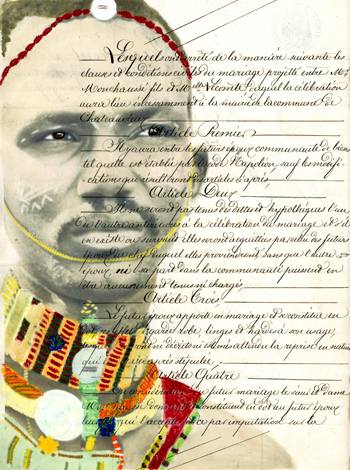 Lesquels ont arrêté de la manière suivante les
clauses et conditions civiles du mariage projetté entre Mr
Monchaussé fils et Mlle Vicomte, duquel la célébration
aura lieu incessamment à la mairie de la commune de
Chateauvieux
Article Premier
Il y aura entre les futurs époux communauté de biens
tel quelle est établie par le Code Napoléon, sauf les modifi
cations qui résulteront des articles ci après
Article Deux
Ils ne seront pas tenus des dettes et hypothèques l'un
de l'autre antérieures à la célébration du mariage et s'il
en existe ou survient elles seront acquittées par celui des futurs
époux du chef duquel elles proviendront sans que l'autre
époux, ni sa part dans la communauté puissent en
être aucunement tenus ni chargés
Article Trois
Le futur époux apporte en mariage et se constitue en
dot ses effets hardes linges et à son usage,
la reprise en nature
qui après stipulée
Article Quatre
En considération du futur mariage le sieur et Dame
Monchaussé donnent et constituent en dot au futur époux
leur fils qui l'accepte par imputation sur la